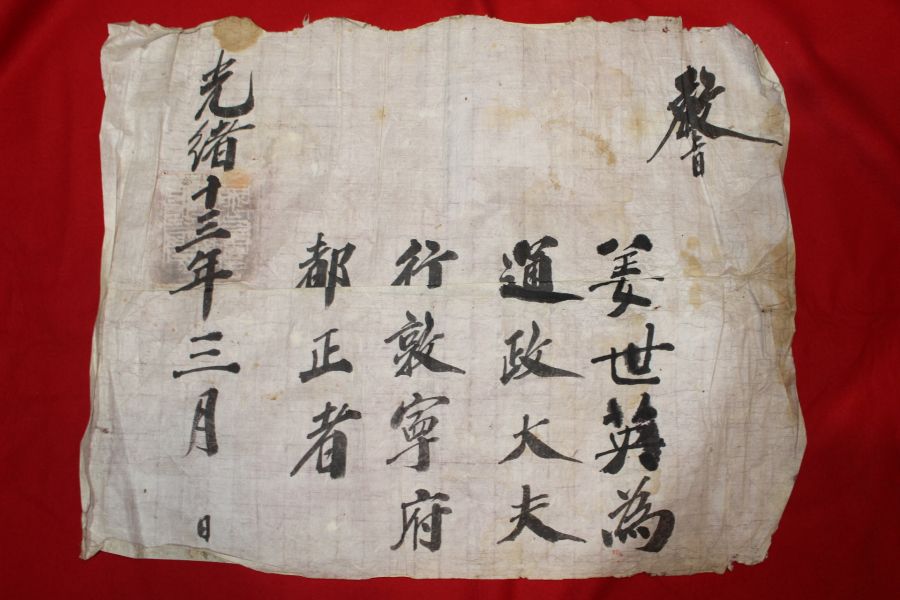 敎旨
姜世英為
通政大夫
行敦寧府
都正者
光緒十三年三月 日